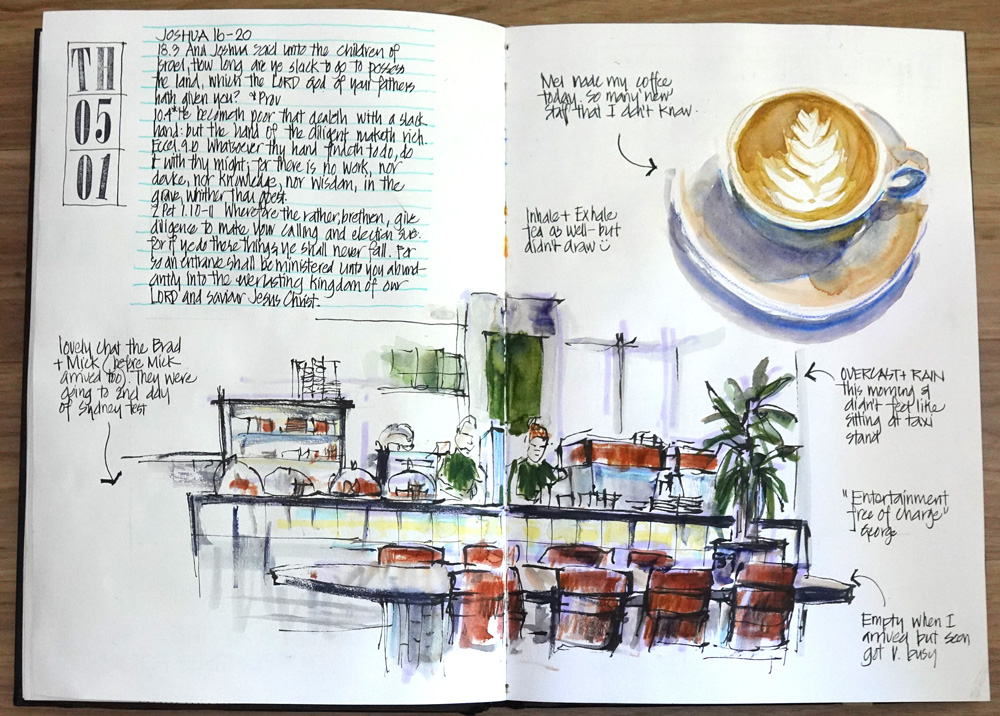 TH
05
01
JOSHUA 16-20
18.3 And Joshua said unto the children of
Israel, How long are ye slack to go to possess
the land, which the LORD God of your fathers
hath given you? *Prov
10.4 *He becometh poor that dealeth with a slack
hand: but the hand of the diligent maketh rich.
Eccel.9.10 Whatsoever thy hand findeth to do, do
it with thy might; for there is no work, nor
device, nor knowledge, nor wisdom, in the
grave, whither thou goest.
2 Pet 1.10-11 Wherefore the rather, brethen, give
diligence to make your calling and election sure:
for if ye do these things, ye shall never fall. For
so an entrance shall be ministered unto you abund-
antly into the everlasting kingdom of our
LORD and saviour Jesus Christ.
Mel made my coffee
today. So many new
staff that I don't know.
Inhale + Exhale
tea as well- but
didn't draw
lovely chat the Brad
+ Mick (before Mick
arrived too). They were
going to 2nd day
of Sydney test
OVERCAST + RAIN
this morning &
didn't feel like
sitting at taxi
stand
"Entertainment
free of charge"
George
Empty when I
arrived but soon
got v. busy